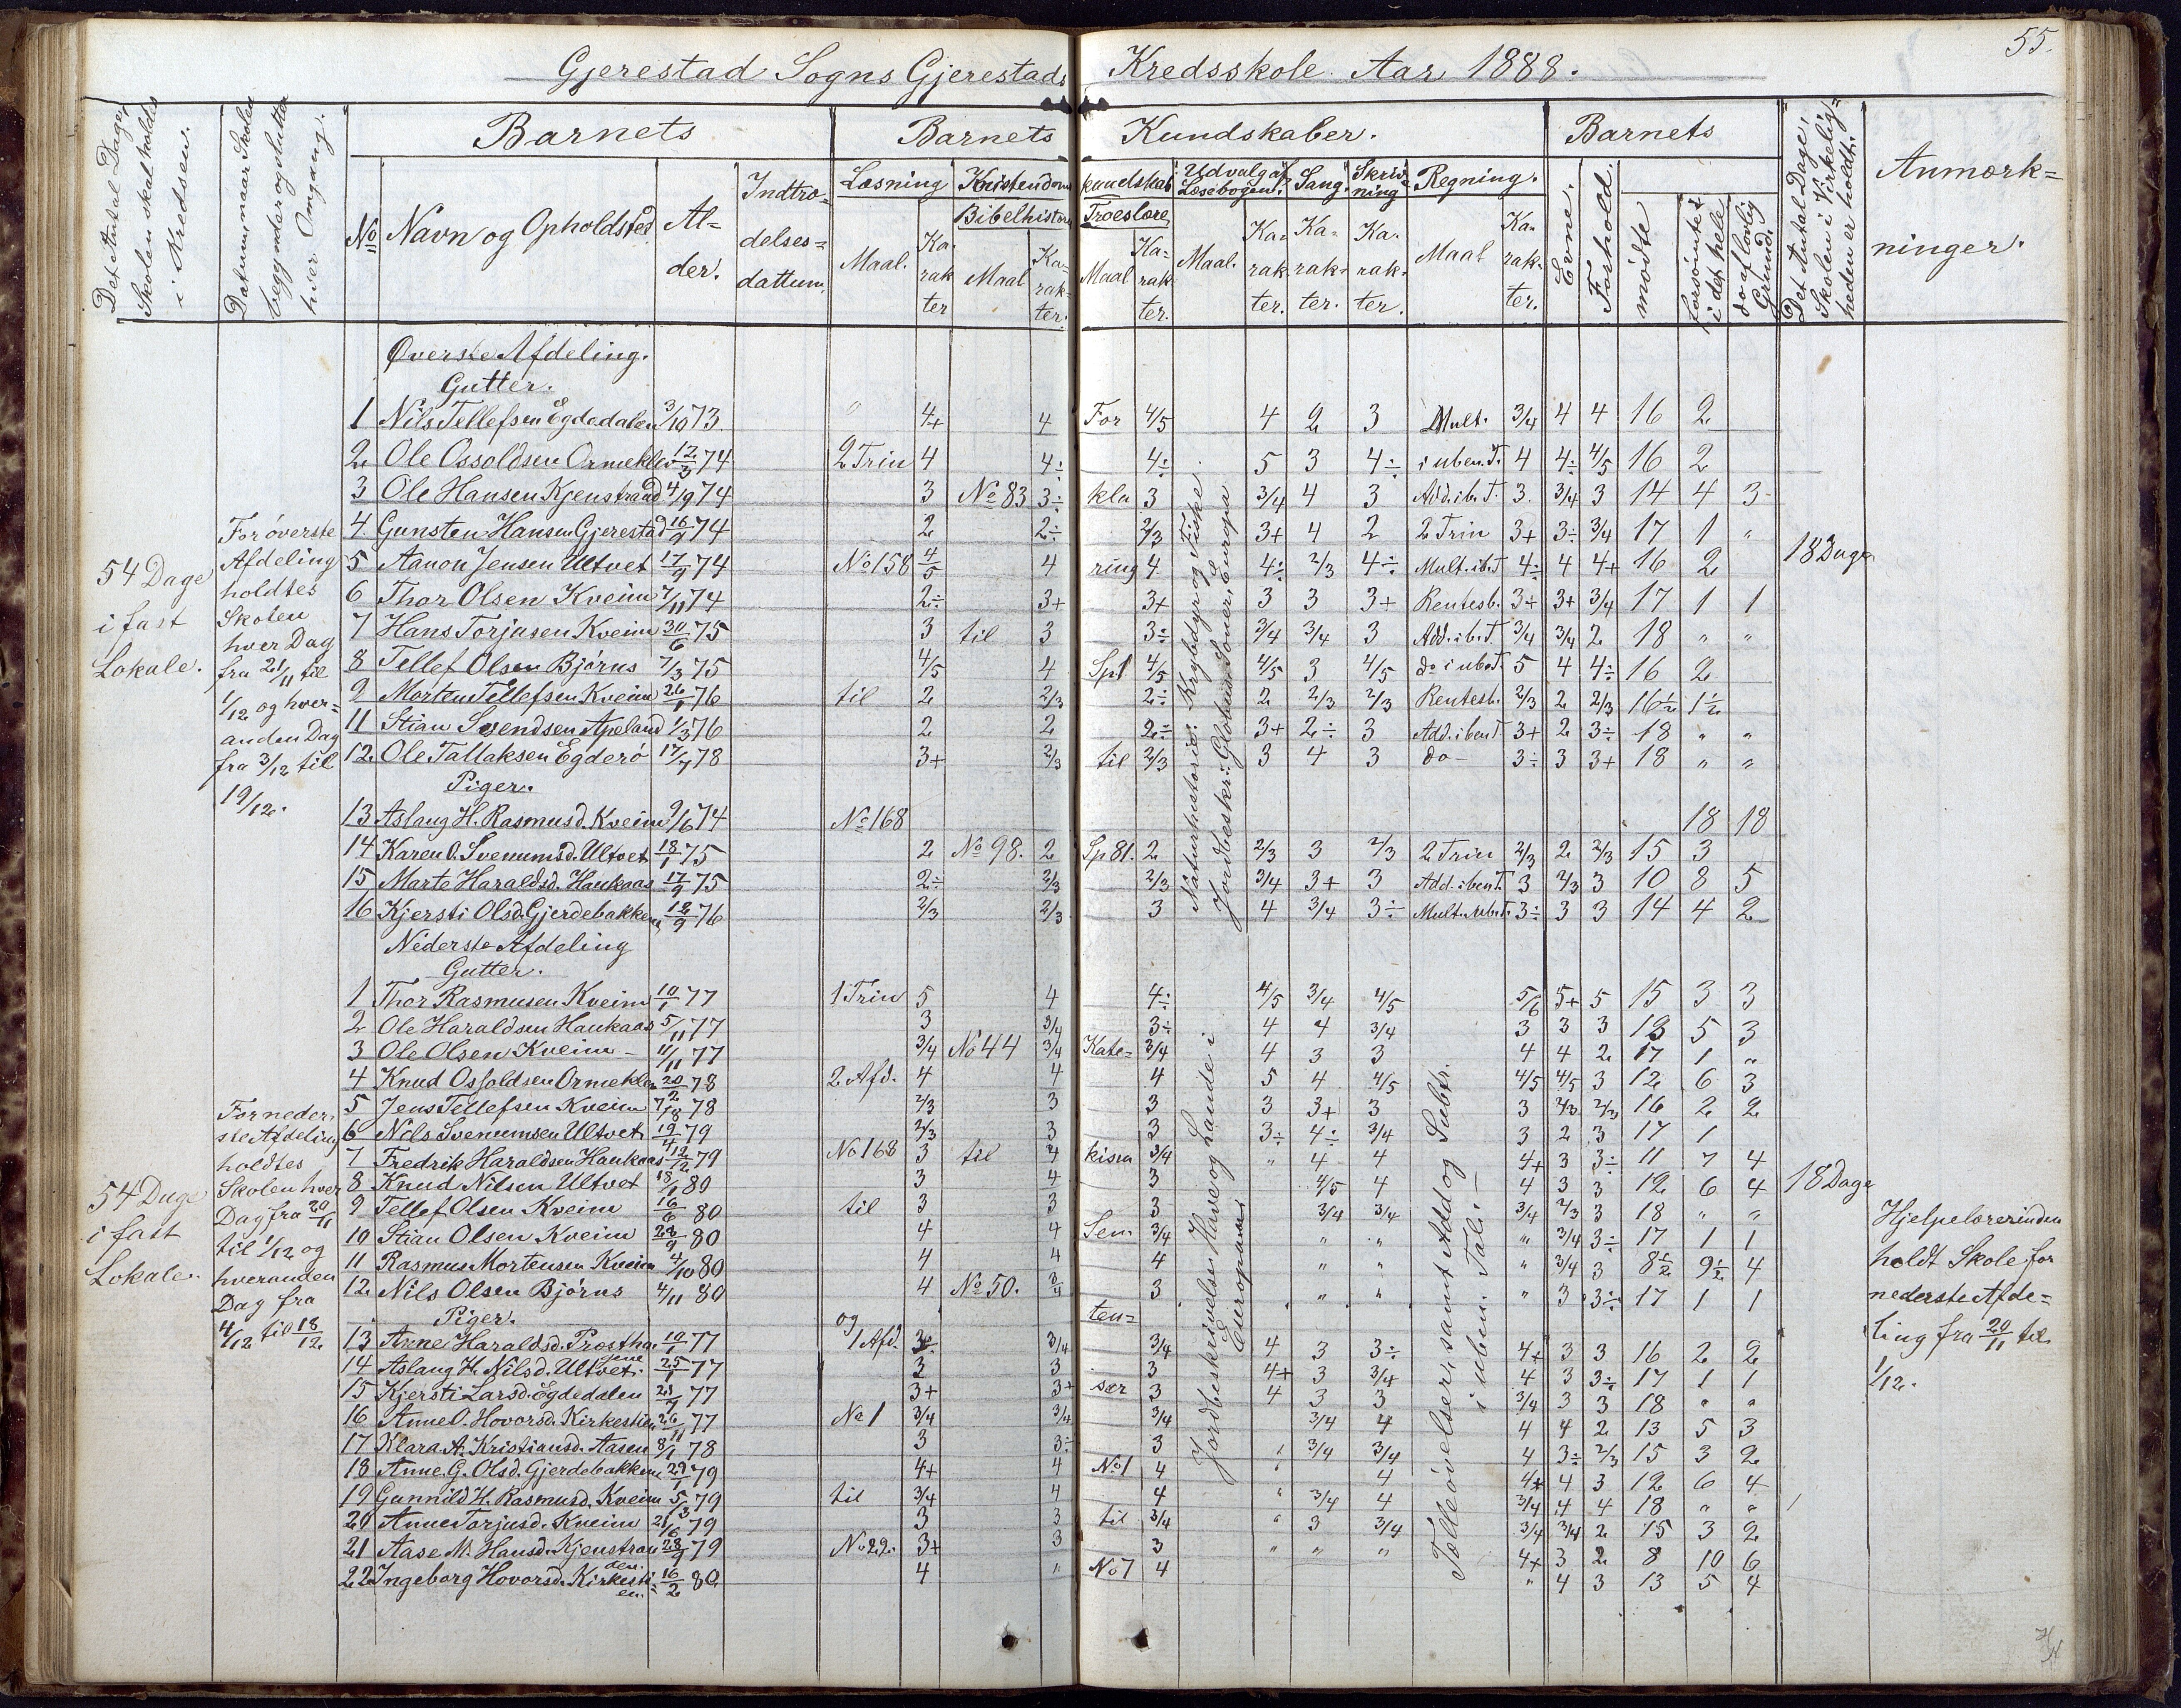 55.
Gjerestad Sogns Gjerestads Kredsskole Aar 1888.
Det Antal Dage, Skolen skal holdes i Kredsen.
Datum, naar Skolen begynder og slutter hver Omgang.
Barnets
Barnets Kundskaber.
Barnets
Det Antal Dage, Skolen i Virkelig= heden er holdt.
Anmærk= ninger.
No Navn og Opholdsted Al= der. Indtræ= delses= dattum.
Læsning Kristendoms kundskab Udvalg af Læsebogen. Sang. Skriv= ning Regning.
Bibelhistorie Troeslære
Maal. Ka= rak ter Maal Ka= rak= ter. Maal Ka= rak ter. Maal. Ka= rak ter. Ka= rak= ter. Ka= rak= ter. Maal Ka= rak= ter.
Evne. Forhold. mødte forsømte i det hele do af lovlig Grund.
Øverste Afdeling.
Gutter.
1 Nils Tellefsen Egdedalen 3/10 73. " 4+ 4 For 4/5 4 2 3 Mult. 3/4 4 4 16 2
2 Ole Ossoldsen Ormeklev 12/3 74 2 Trin 4 4÷ 4÷ 5 3 4÷ i uben. T. 4 4÷ 4/5 16 2
3 Ole Hansen Kjenstraad 4/9 74 3 No 83 3÷ kla 3 3/4 4 3 Add. i b. T. 3. 3/4 3 14 4 3
4. Gunsten Hansen Gjerestad 16/9 74 2 2÷ 2/3 3+ 4 2 2 Trin 3+ 3÷ 3/4 17 1 "
5 Aanon Jensen Ultvet 17/9 74 No 158 4/5 4 ring 4 4÷ 2/3 4÷ Mult. i b. T 4÷ 4 4+ 16 2
6 Thor Olsen Kveim 7/11 74 2÷ 3+ 3+ 3 3 3+ Rentesb. 3+ 3+ 3/4 17 1 1
7 Hans Torjusen Kveim 30/6 75 3 til 3 3÷ 3/4 3/4 3 Add. i b. T. 3/4 3/4 2 18 " "
8 Tellef Olsen Bjørns 7/3 75 4/5 4 Sp1 4/5 4/5 3 4/5 do i ub. T. 5 4 4÷ 16 2
9 Morten Tellefsen Kveim 26/1 76 til 2 2/3 2÷ 2 2/3 2/3 Rentesb. 2/3 2 2/3 16½ 1½
11 Stian Svendsen Apeland 1/3 76 2 2 2÷ 3+ 2÷ 3 Add. i ben T. 3+ 2 3÷ 18 " "
12. Ole Tallaksen Egderø 17/7 78 3+ 2/3 til 2/3 3 4 3 do 3÷ 3 3+ 18 " "
Piger.
13 Aslaug H. Rasmusd. Kveim 9/6 74 No 168 18 18
14 Karen O. Svenumsd. Ultvet 18/1 75 2 No 98. 2 Sp 81. 2 2/3 3 2/3 2 Trin 2/3 2 2/3 15 3
15 Marte Haraldsd. Haukaas 17/9 75 2÷ 2/3 2/3 3/4 3+ 3 Add. i ben T. 3 2/3 3 10 8 5
16 Kjersti Olsd. Gjerdebakken 12/9 76 2/3 2/3 3 4 3/4 3÷ Mult. ub. T. 3÷ 3 3 14 4 2
54 Dage i fast Lokale.
For øverste Afdeling holdtes Skolen hver Dag fra 21/11 til 1/12 og hver= anden Dag fra 3/12 til 19/12.
Naturhistorie: Krybdyr og Fiske
Jordbeskr: Globus Soner, Europa
18 Dage
Nederste Afdeling
Gutter.
1 Thor Rasmusen Kveim 10/1 77 1 Trin 5 4 4÷ 4/5 3/4 4/5 5/6 5+ 5 15 3 3
2 Ole Haraldsen Haukaas 5/11 77 3 3/4 3÷ 4 4 3/4 3 3 3 13 5 3
3 Ole Olsen Kveim 11/11 77 3/4 No 44 3/4 Kate= 3/4 4 3 3 4 4 2 17 1 "
4 Knud Ossoldsen Ormeklev 20/2 78 2 Afd. 4 4 4 5 4 4/5 4/5 4/5 3 12 6 3
5 Jens Tellefsen Kveim 7/8 78 2/3 3 3 3 3+ 3 3 2/3 2/3 16 2 2
6 Nils Svenumsen Ultvet 19/4 79 2/3 3 3 3÷ 4÷ 3/4 3 2 3 17 1
7 Fredrik Haraldsen Haukaas 12/12 79 No 168 3 til 4 kisma 3/4 " 4 4 4+ 3 3÷ 11 7 4
8 Knud Nilsen Ultvet 18/1 80 3 4 3 4/5 4 4 3 3 12 6 4
9 Tellef Olsen Kveim 16/6 80 til 3 3 3 3/4 3/4 3/4 2/3 3 18 " "
10 Stian Olsen Kveim 28/9 80 4 4 Sen 3/4 " " " 3/4 3÷ 17 1 1
11 Rasmus Mortensen Kveim 4/10 80 4 4 4 " " " 3/4 3 8½ 9½ 4
12. Nils Olsen Bjørns 4/11 80 4 No 50. 3/4 3 " " " 3 3÷ 17 1 1
Piger. og ten=
13 Anne Haraldsd. Prostha 10/1 77 1 Afd. 3÷ 3/4 3/4 4 3 3÷ 4+ 3 3 16 2 2
14 Aslaug H. Nilsd. Ultvet. 25/1 77 3 3 3 4+ 3 3/4 4 3 3÷ 17 1 1
15 Kjersti Larsd. Egdedalen 21/7 77 3+ 3+ ser 3 4 3 3 3/4 3 3 18 " "
16 Anne O. Hovorsd. Kirkestien 26/11 77 No 1 3/4 3/4 3/4 3/4 4 4 4 2 13 5 3
17 Klara A. Kristiansd. Aasen 8/1 78 3 3÷ 3 " 3/4 3/4 4 3÷ 2/3 15 3 2
18 Anne. G. Olsd. Gjerdebakken 29/1 79 4+ 4 No 1 4 " 4 4+ 4 3 12 6 4
19 Gunnild H. Rasmusd. Kveim 5/3 79 til 3/4 4 4 " 3/4 4 3/4 4 4 18 " "
20 Anne Torjusd. Kveim 21/6 79 3 3 til 3/4 " 3 3/4 3/4 3/4 2 15 3 2
21 Aase M. Hansd. Kjenstraa 28/9 79 No 22. 3+ 3 3 " " " 4+ 3 2 8 10 6
den.
22 Ingeborg Hovorsd. Kirkesti= en. 16/2 80 4 " No 7 4 " 4 3 13 5 4
54 Dage i fast Lokale.
For neder= ste Afdeling holdtes Skolen hver Dag fra 20/11 til 1/12 og hveranden Dag fra 4/12 til 18/12
Jordbeskrivelse: Have og Lande i Europa
Tælleøvelser, samt Add og Subtr. i uben. Tal.
18 Dage
Hjelpelærerinden
holdt Skole for
nederste Afde=
ling fra 20/11 til
1/12.